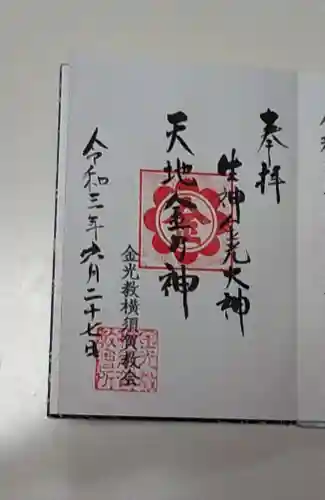 奉拝
生神金光大神
天地金乃神
金光教横須賀教会
令和三年六月二十七日